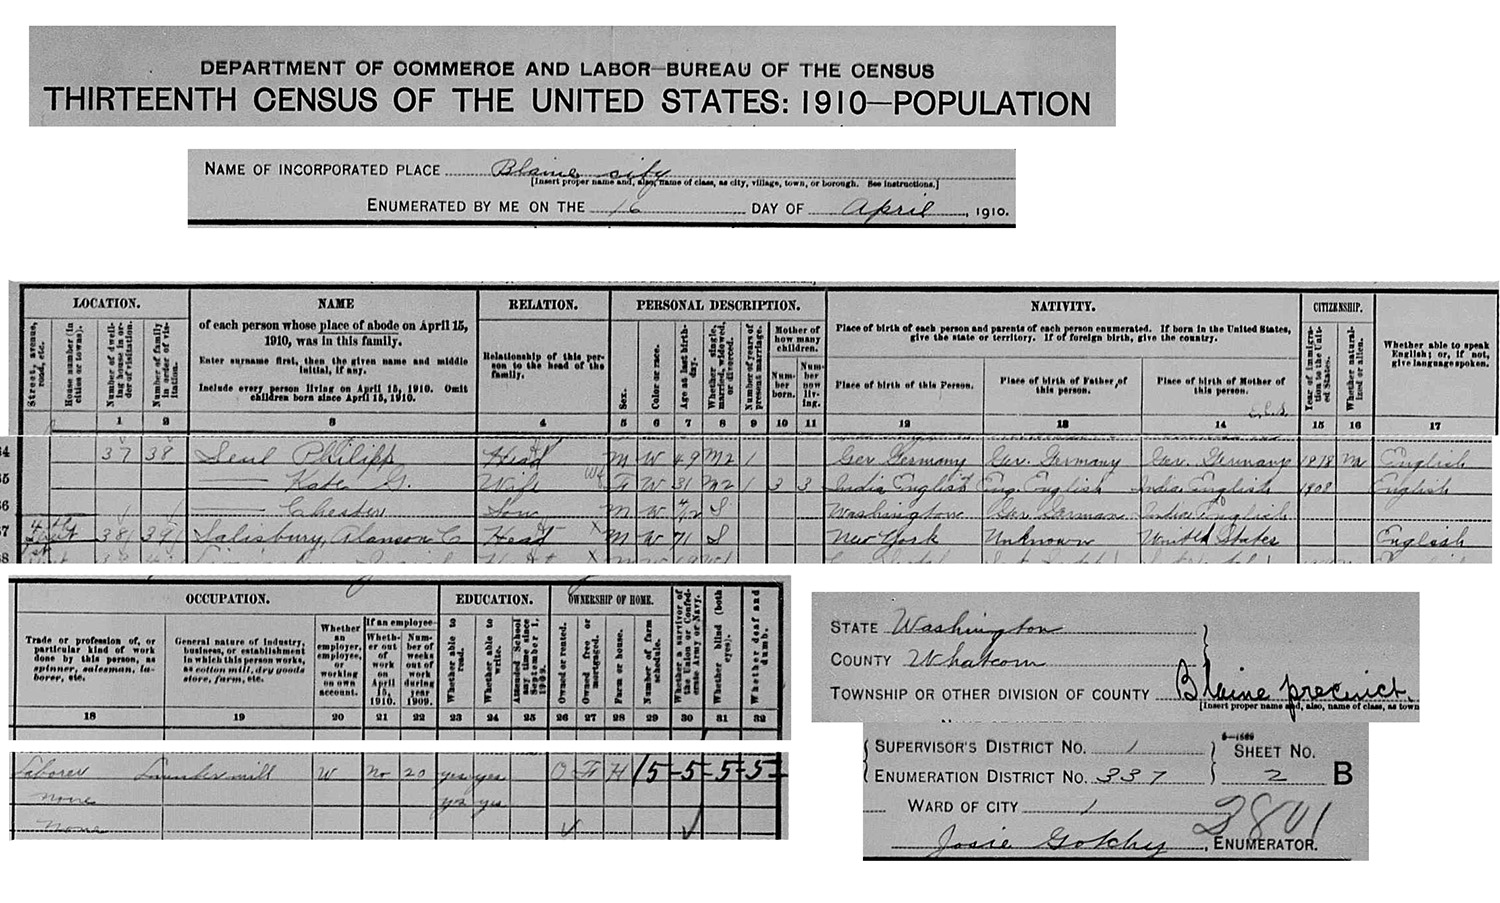 DEPARTMENT OF COMMERCE AND LABOR—BUREAU OF THE CENSUS
THIRTEENTH CENSUS OF THE UNITED STATES: 1910—POPULATION
NAME OF INCORPORATED PLACE Blaine city
[Insert proper name and, also, name of class, as city, village, town, or borough. See instructions.]
ENUMERATED BY ME ON THE 16 DAY OF April, 1910.
LOCATION.
Street, avenue, road, etc.
House number (in cities or towns).
Number of dwelling house in order of visitation.
Number of family in order of visitation.
NAME
of each person whose place of abode on April 15,
1910, was in this family.
Enter surname first, then the given name and middle
initial, if any.
Include every person living on April 15, 1910. Omit
children born since April 15, 1910.
RELATION.
Relationship of this per-
son to the head of the
family.
PERSONAL DESCRIPTION.
Sex.
Color or race.
Age at last birth-
day.
Whether single, married, widowed, or divorced.
Number of years of present marriage.
Mother of how many children.
Num-
ber
born.
Num-
ber
now
liv-
ing.
NATIVITY.
Place of birth of each person and parents of each person enumerated. If born in the United States,
give the state or territory. If of foreign birth, give the country.
Place of birth of this Person.
Place of birth of Father of
this person.
Place of birth of Mother of
this person.
CITIZENSHIP.
Year of immigra-
tion to the Unit-
ed States.
Whether natural-
ized or alien.
Whether able to speak
English; or, if not,
give language spoken.
1 2 3 4 5 6 7 8 9 10 11 12 13 14 15 16 17
34 37 38 Seul Philipp Head M W 49 M2 1 Ger. Germany Ger. Germany Ger. Germany 1878 English
35 Kate G. Wife F W 31 M2 1 3 3 India English Eng. English India English 1908 English
36 Chester Son M W S Washington Ger. German India English
37 38 39 Salisbury, Alanson C Head M W 71 S New York Unknown United States English
38
OCCUPATION.
Trade or profession of, or
particular kind of work
done by this person, as
spinner, salesman, la-
borer, etc.
General nature of industry,
business, or establishment
in which this person works,
as cotton mill, dry goods
store, farm, etc.
Whether
an
employer,
employee,
or
working
on own
account.
If an employee—
Wheth-
er out
of
work
on
April
15,
1910.
Num-
ber of
weeks
out of
work
during
year
1909.
EDUCATION.
Whether able to read.
Whether able to write.
Attended School any time since September 1, 1909.
OWNERSHIP OF HOME.
Owned or rented.
Owned free or mortgaged.
Farm or house.
Number of farm schedule.
Whether a survivor of the Union or Confed-
erate Army or Navy.
Whether blind (both eyes).
Whether deaf and dumb.
18 19 20 21 22 23 24 25 26 27 28 29 30 31 32
Laborer Lumber mill W No 20 yes yes O Fr H 15-5-5-5-
none yes yes
none
STATE Washington
COUNTY Whatcom
TOWNSHIP OR OTHER DIVISION OF COUNTY Blaine precinct
[Insert proper name and, also, name of class, as town
SUPERVISOR'S DISTRICT No. 1
SHEET No.
ENUMERATION DISTRICT No. 337
2 B
WARD OF CITY 1
2801
Josie , ENUMERATOR.